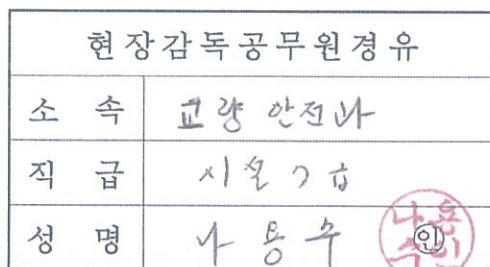 현장감독공무원경유
소 속 교량 안전과
직 급 시설 7급
성 명 나 용 수 인